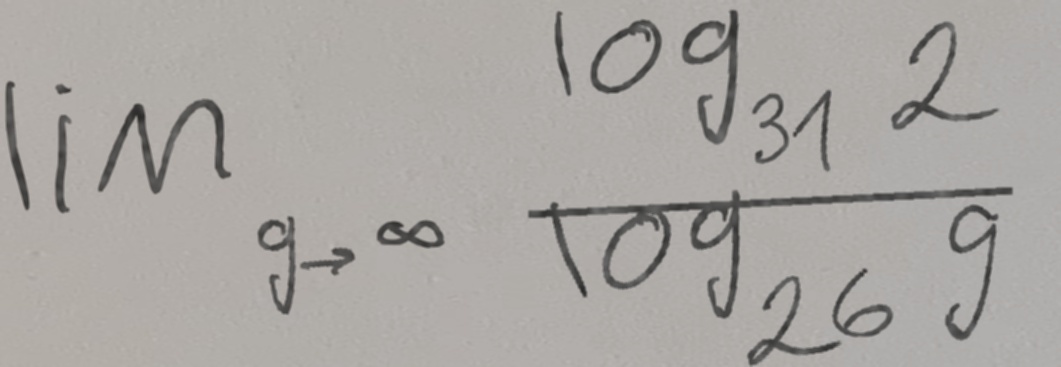 lim_{g→∞} \frac{log_{31} 2}{log_{26} g}